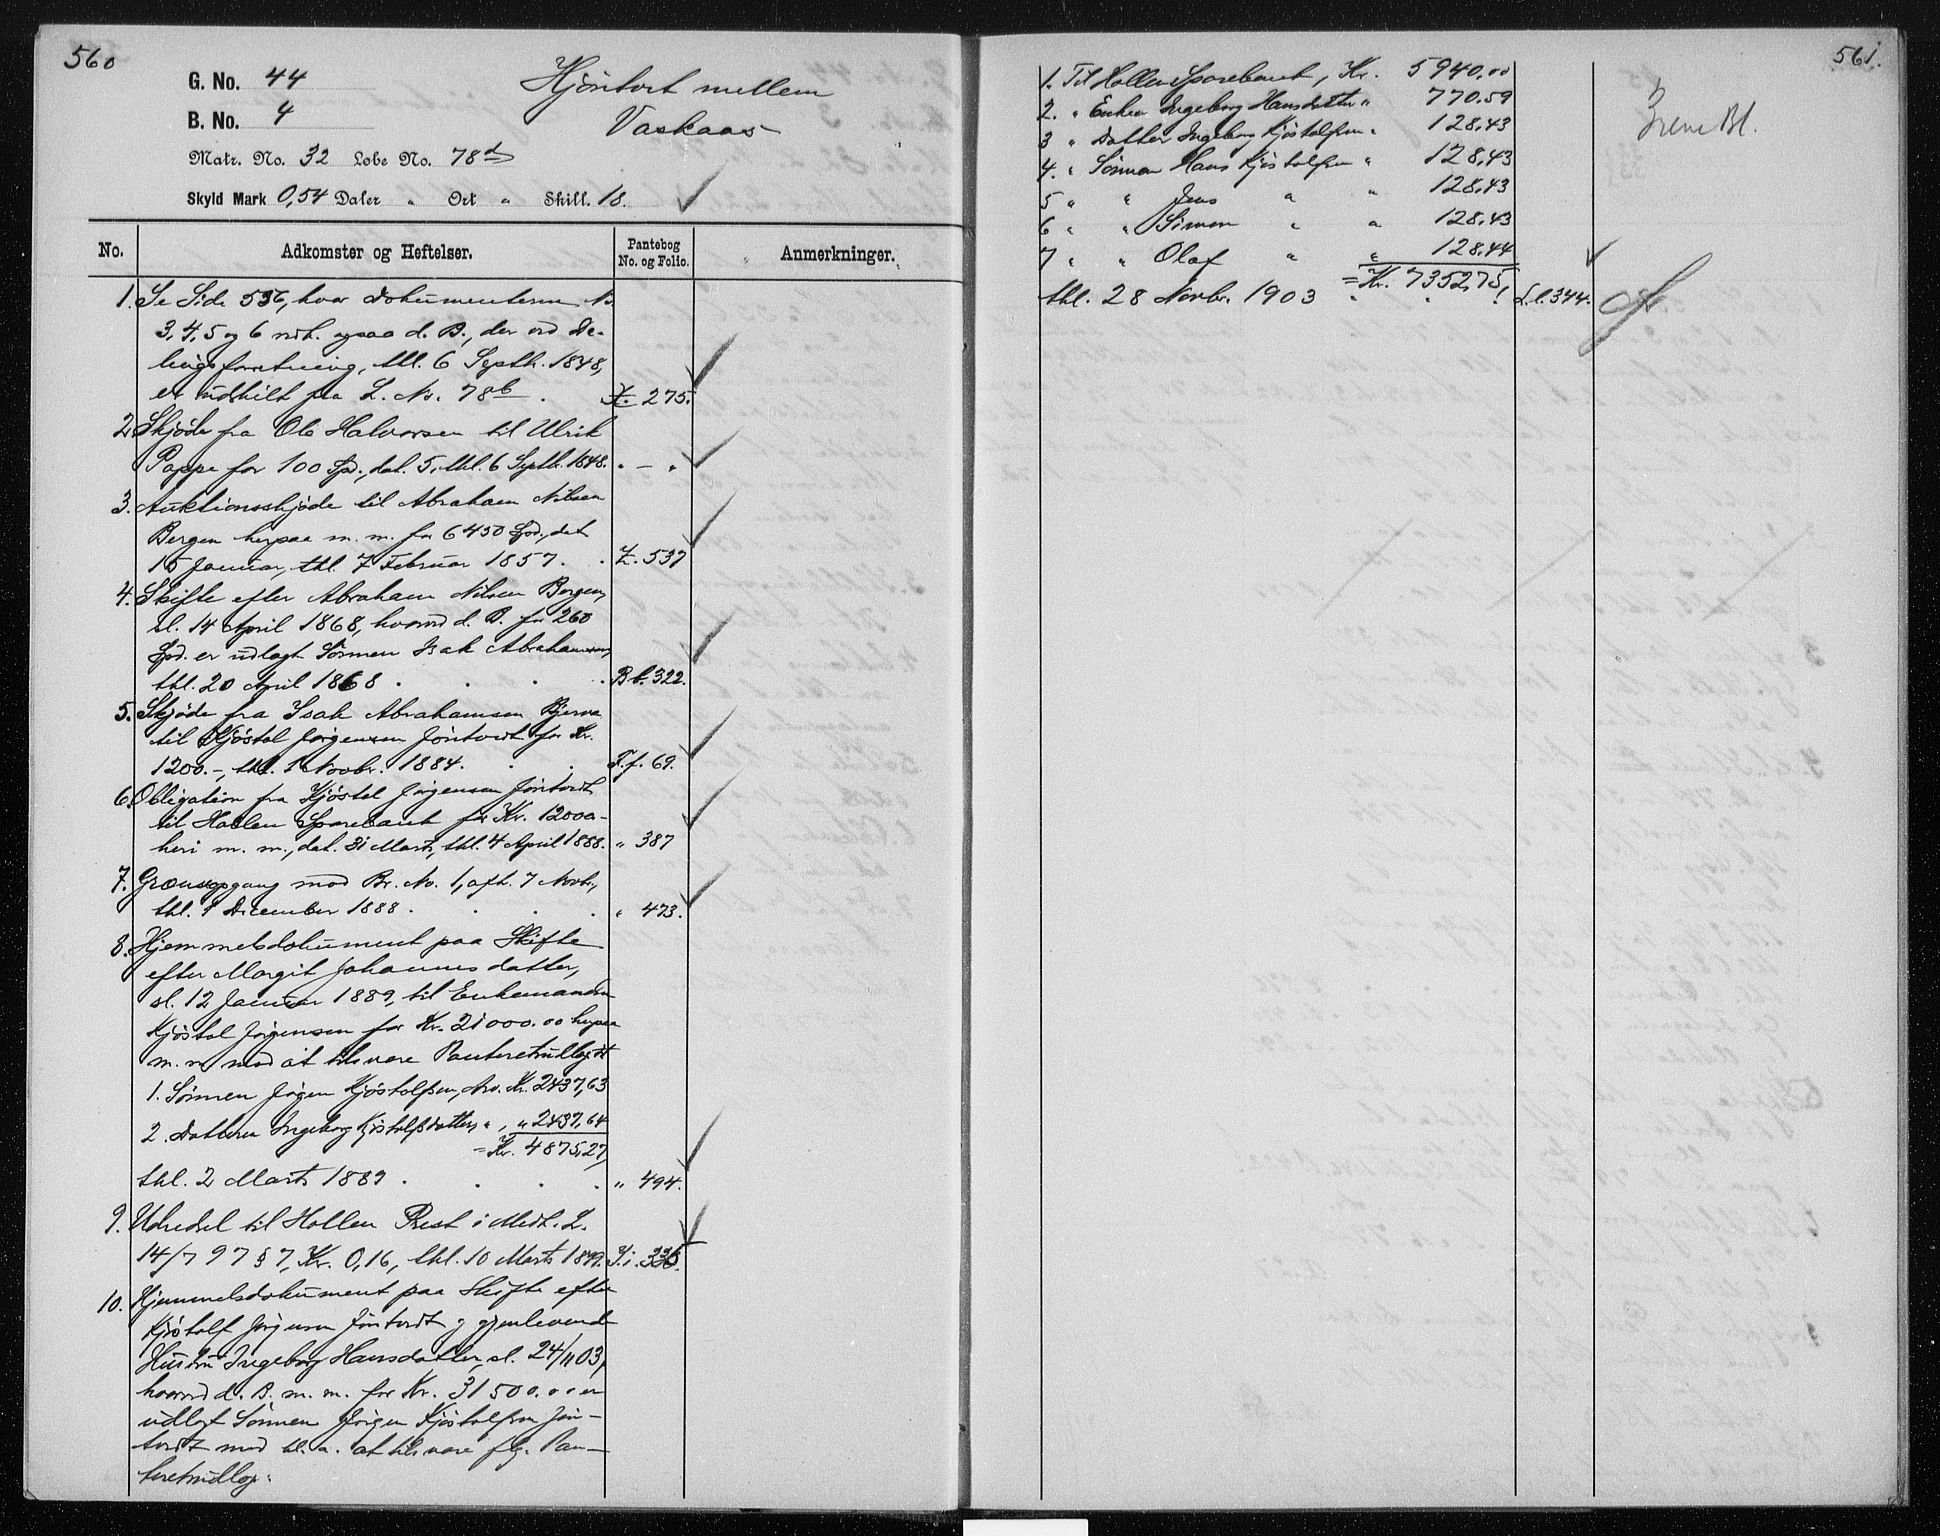 560
G. No. 44
B. No. 4
Hjöntvet mellem
Vaskaas
Matr. No. 32 Løbe No. 78d
Skyld Mark 0,54 Daler " Ort " Skill. 18.
No. Adkomster og Heftelser. Pantebog No. og Folio. Anmerkninger.
1. Se Side 536, hvor Dokumenterne No
3, 4, 5 og 6 vedk. ogsaa d. B., der ved De-
lingsforretning, thl. 6 Septbr. 1848,
er udskilt fra L. No. 78b . 275.
2. Skjøde fra Ole Halvorsen til Ulrik
Pappe for 100 Spd., dat. 5, thl. 6 Septb. 1848. " — "
3. Auktionsskjøde til Abraham Nilsen
Bergen herpaa m. m. for 6450 Spd., dat
15 Januar, thl. 7 Februar 1857. . 537
4. Skifte efter Abraham Nilsen Borgen,
sl. 14 April 1868, hvorved d. B. for 260
Spd. er udlagt Sönnen Isak Abrahamsen,
thl. 20 April 1868 . . . . B b. 322.
5. Skjöde fra Isak Abrahamsen Bjerva
til Kjöstol Jörgensen Jöntvedt for Kr.
1200.-, thl. 1 Novbr. 1884. . . F.f. 69.
6. Obligation fra Kjöstol Jörgensen Jöntvedt
til Hollen Sparebank for Kr. 12000-
heri m. m., dat. 31 Marts, thl. 4 April 1888. " 387
7. Grænseopgang mod Br. No. 1, afh. 7 Novbr.,
thl. 1 December 1888 . . . . " 473.
8. Hjemmelsdokument paa Skifte
efter Margit Johannesdatter,
sl. 12 Januar 1889, til Enkemanden
Kjöstol Jörgensen for Kr. 21000.00 herpaa
m. m. mod at tilsvare Panteretudlagt
1. Sönnen Jörgen Kjöstolfsen, Arv. Kr. 2437,63
2. Datteren Ingeborg Kjöstolfsdatter, " , " 2437,64
= Kr. 4875,27,
thl. 2 Marts 1889 . . . . " 494.
9. Udredsel til Hollen Prest i Medh. L.
14/7 97 § 7, Kr. 0,16, thl. 10 Marts 1899. F.i. 336.
10. Hjemmelsdokument paa Skifte efter
Kjöstolf Jörgensen Jöntvedt og gjenlevende
Hustru Ingeborg Hansdatter, sl. 24/11 03,
hvorved d. B. m. m. for Kr. 31500.00 er
udlagt Sönnen Jörgen Kjöstolfsen Jön-
tvedt mod bl. a. at tilsvare flg. Pan-
teretudlæg:
561.
1. Til Hollen Sparebank, Kr. 5940.00
2. " Enken Ingeborg Hansdatter " 770.59
3 " Datter Ingeborg Kjöstolfsen " 128.43
4. " Sönnen Hans Kjöstolfsen " 128.43
5 " " Jens " " 128.43
6 " " Simon " " 128.43
7 " " Olaf " " 128.44
= Kr. 7352,75,
thl. 28 Novbr. 1903 . . . L.l. 344.
Bl.